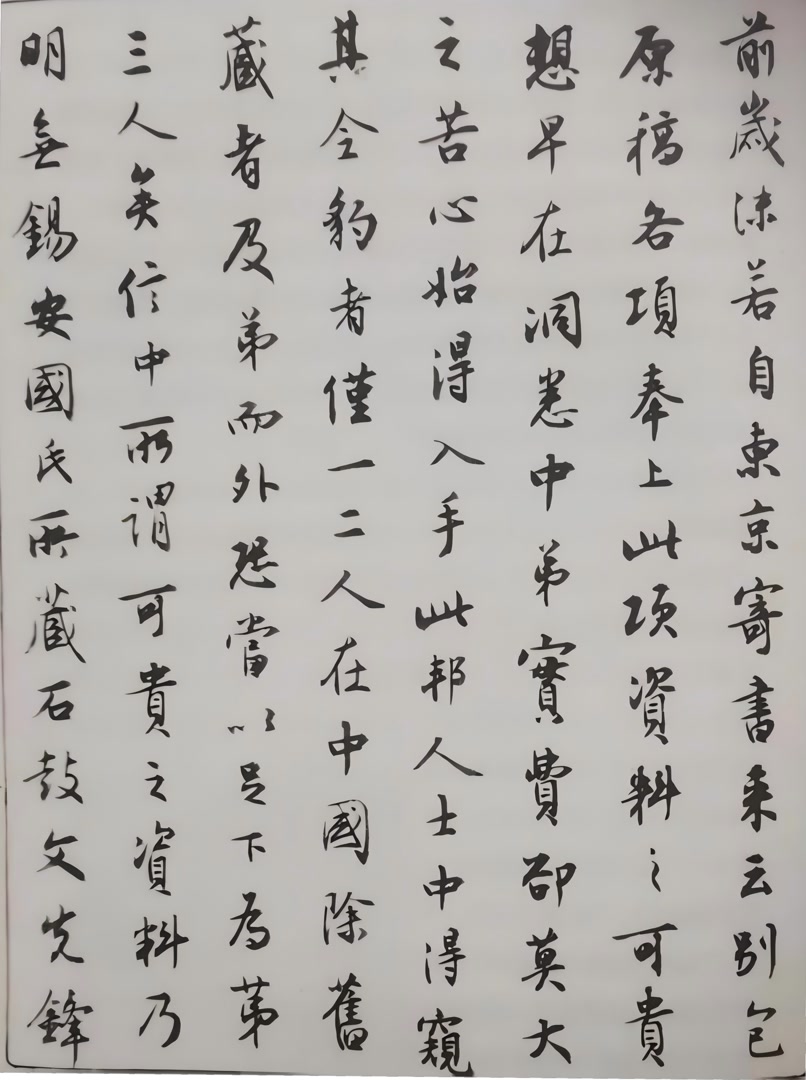 前歲沫若自東京寄書來云別包
原稿各項奉上此項資料之可貴
想早在洞悉中弟實費卻莫大
之苦心始得入手此邦人士中得窺
其全豹者僅一二人在中國除舊
藏者及弟而外恐當以足下為第
三人矣信中所謂可貴之資料乃
明無錫安國氏所藏石鼓文先鋒